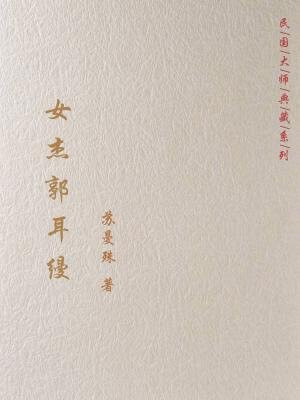 民|国|大|师|典|藏|系|列
女杰郭耳缦
苏曼殊 著